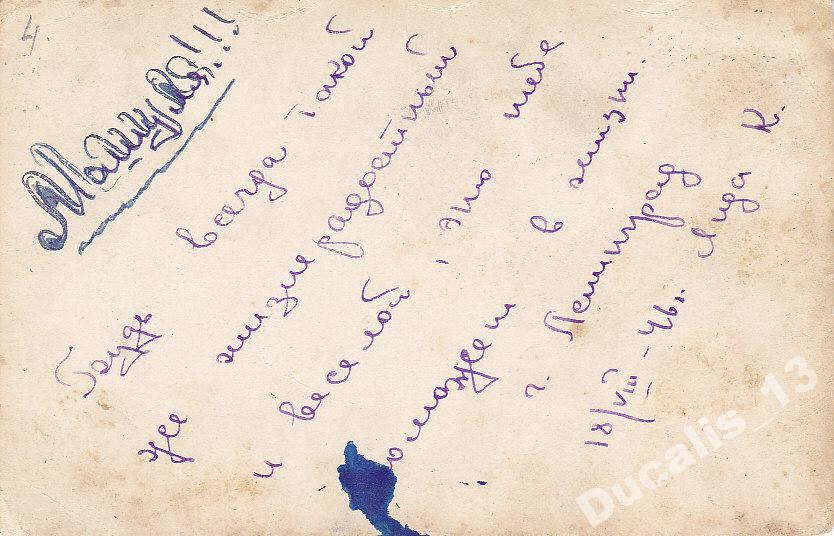 4.
Машуля!!!
Будь всегда такой
же жизнерадостный
и веселой, это тебе
поможет в жизни.
г. Ленинград
18/VIII-46г. Лида К.
Ducalis_13